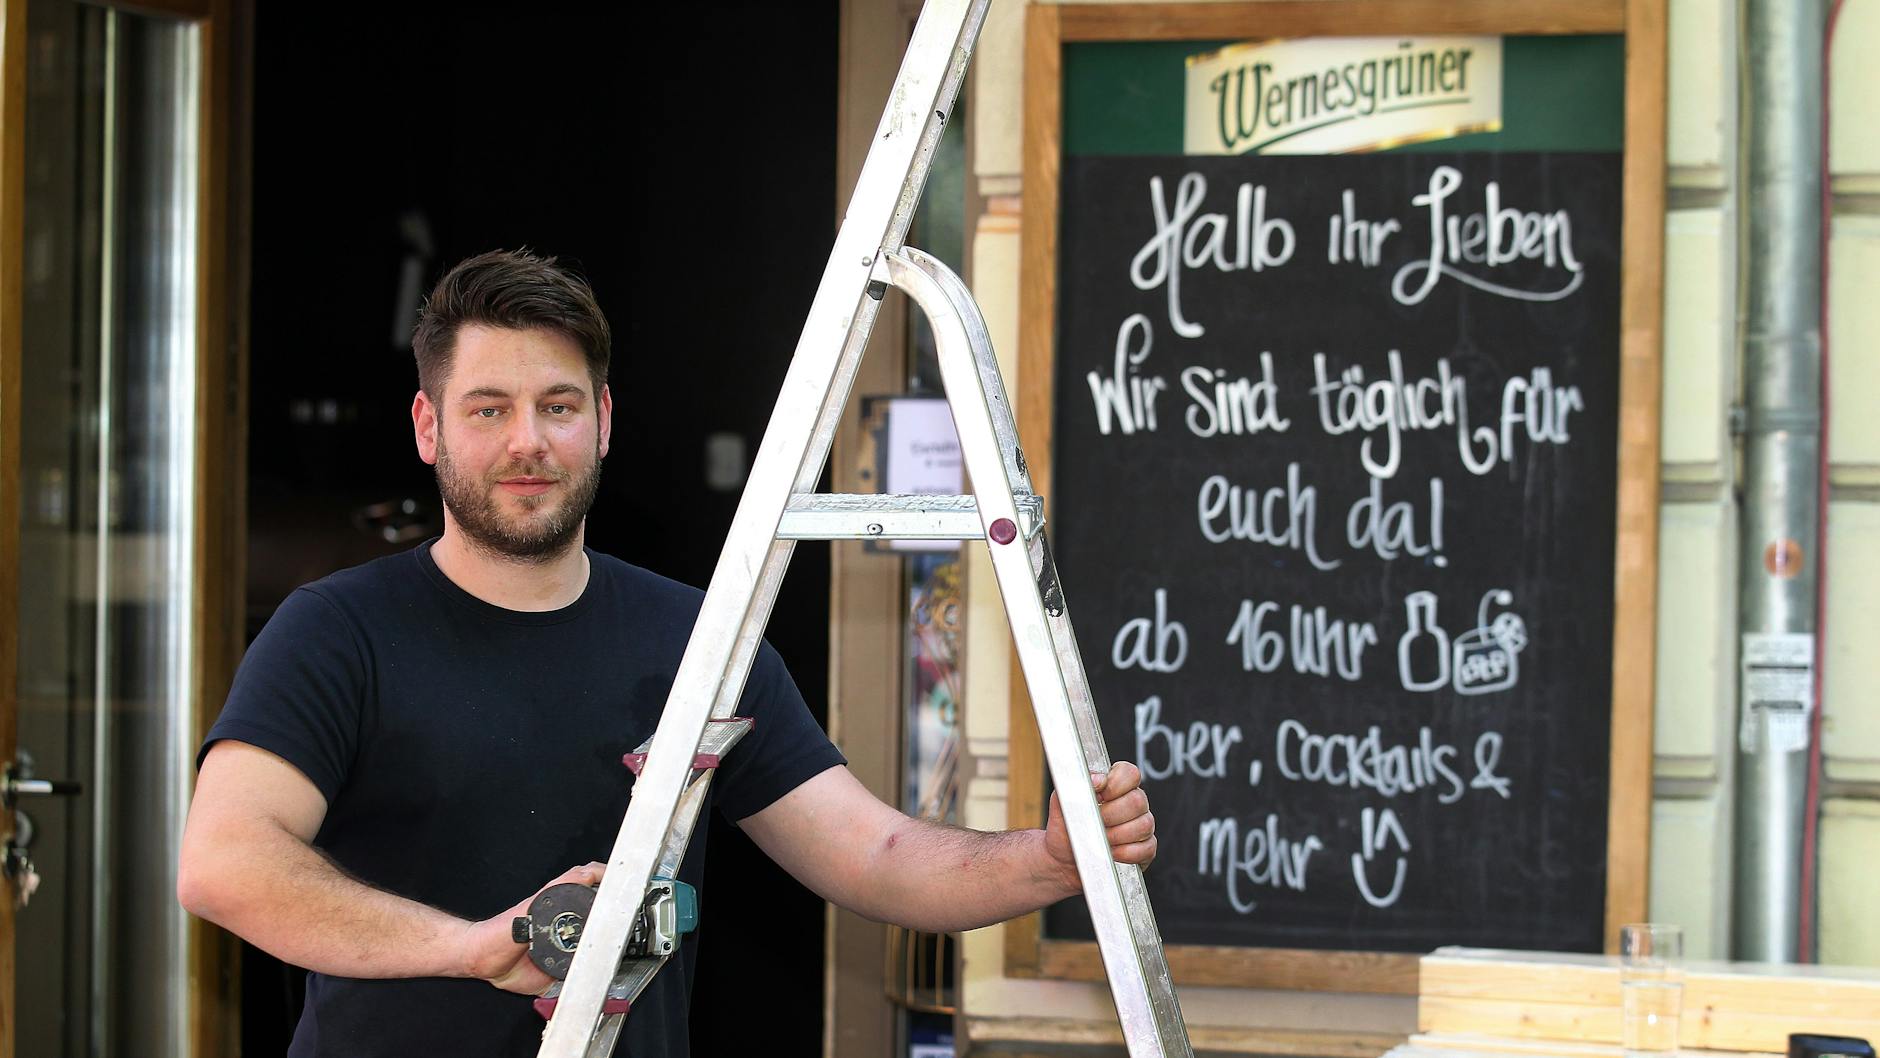 Wernesgrüner
Hallo ihr Lieben
Wir sind täglich für
euch da!
ab 16 Uhr
Bier, Cocktails &
mehr